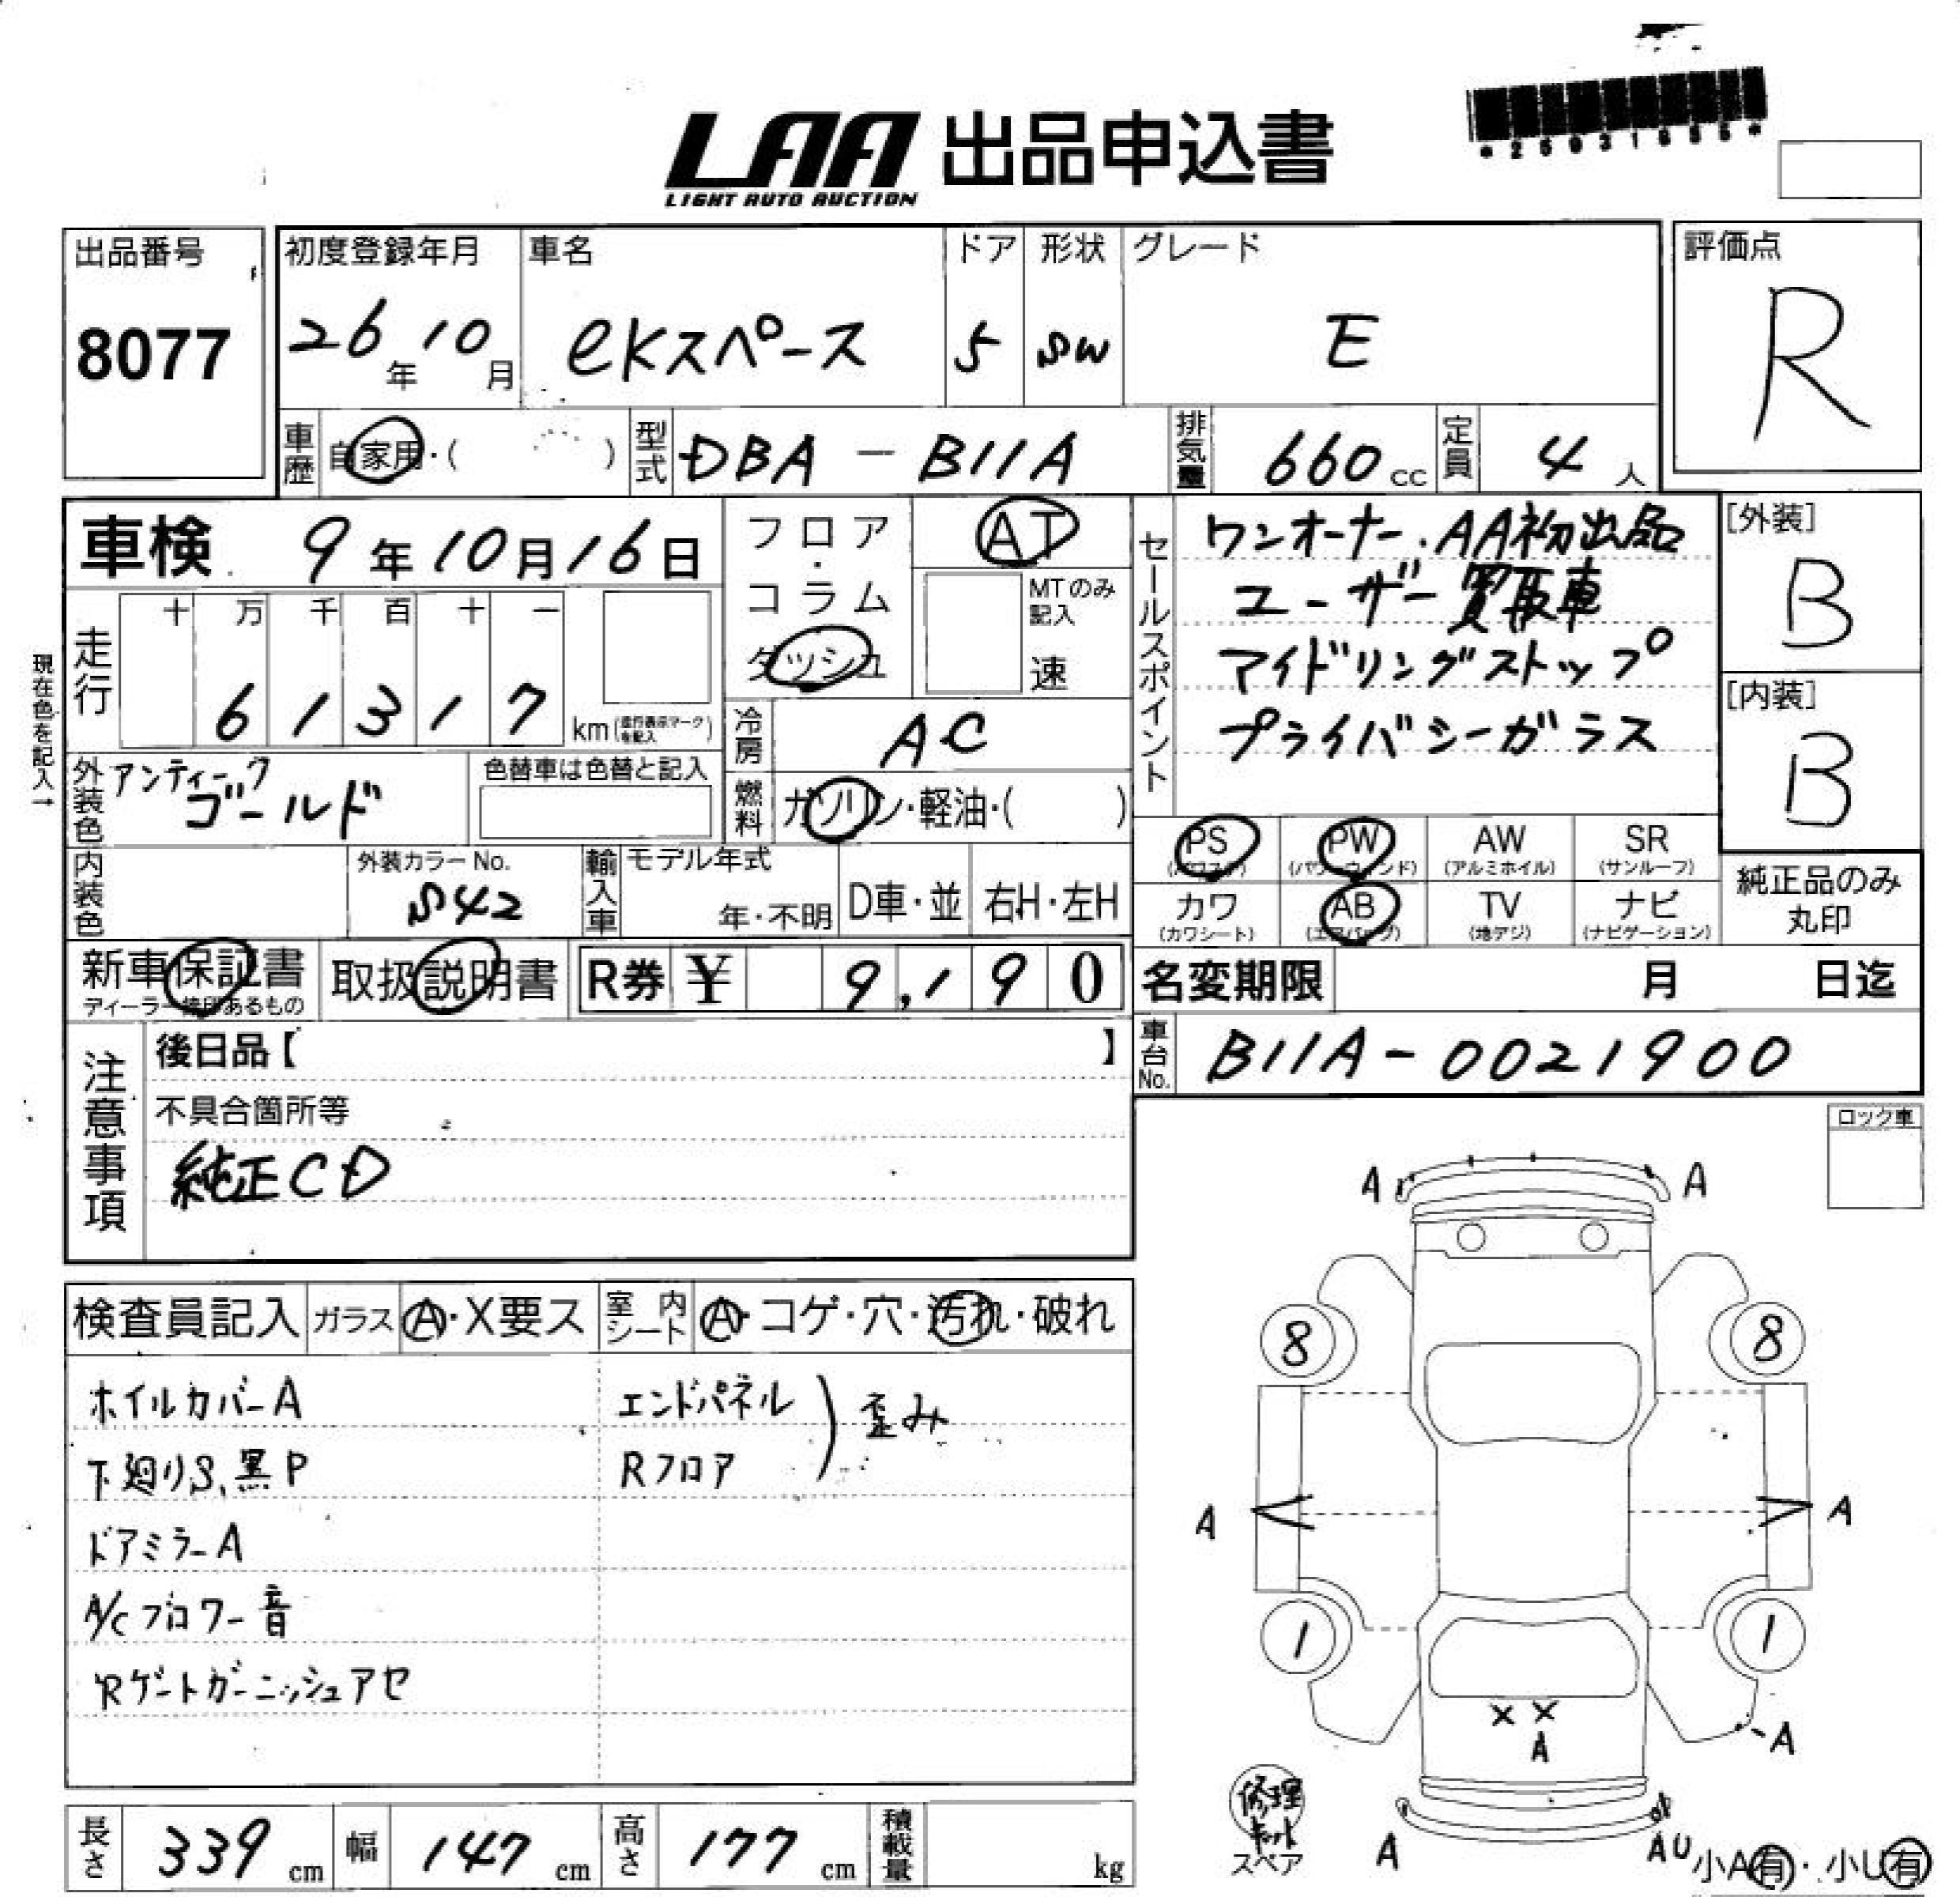 LAA 出品申込書
LIGHT AUTO AUCTION
出品番号
8077
初度登録年月
26年10月
車名
eKスペース
ドア
5
形状
SW
グレード
E
評価点
R
車歴 自家用・( )
型式 DBA-B11A
排気量 660cc
定員 4人
車検 9年10月16日
フロア・コラム ダッシュ
AT
MTのみ記入
速
セールスポイント
ワンオーナー.AA初出品
ユーザー買取車
アイドリングストップ
プライバシーガラス
[外装]
B
[内装]
B
現在色を記入→
走行
十 万 千 百 十 一
6 1 3 1 7 km(走行表示マークを記入)
冷房 AC
外装色 アンティークゴールド
色替車は色替と記入
燃料 ガソリン・軽油・( )
内装色
外装カラーNo.
S42
輸入車
モデル年式
年・不明
D車・並
右H・左H
PS (パワステ)
PW (パワーウィンド)
AW (アルミホイル)
SR (サンルーフ)
カワ (カワシート)
AB (エアバッグ)
TV (地デジ)
ナビ (ナビゲーション)
純正品のみ丸印
新車保証書
ディーラー捺印あるもの
取扱説明書
R券 ¥ 9,190
名変期限 月 日迄
車台No. B11A-0021900
注意事項
後日品【 】
不具合箇所等
純正CD
ロック車
検査員記入
ガラス A・X要ス
室内シート A・コゲ・穴・汚れ・破れ
ホイルカバーA
下廻りS、黒P
ドアミラーA
A/Cブロワー音
Rゲートガーニッシュアセ
エンドパネル
Rフロア
歪み
A A
8 8
A A
1 1
X X
A
A
修理キット
スペア
A
AU
小A有・小U有
長さ 339cm
幅 147cm
高さ 177cm
積載量 kg